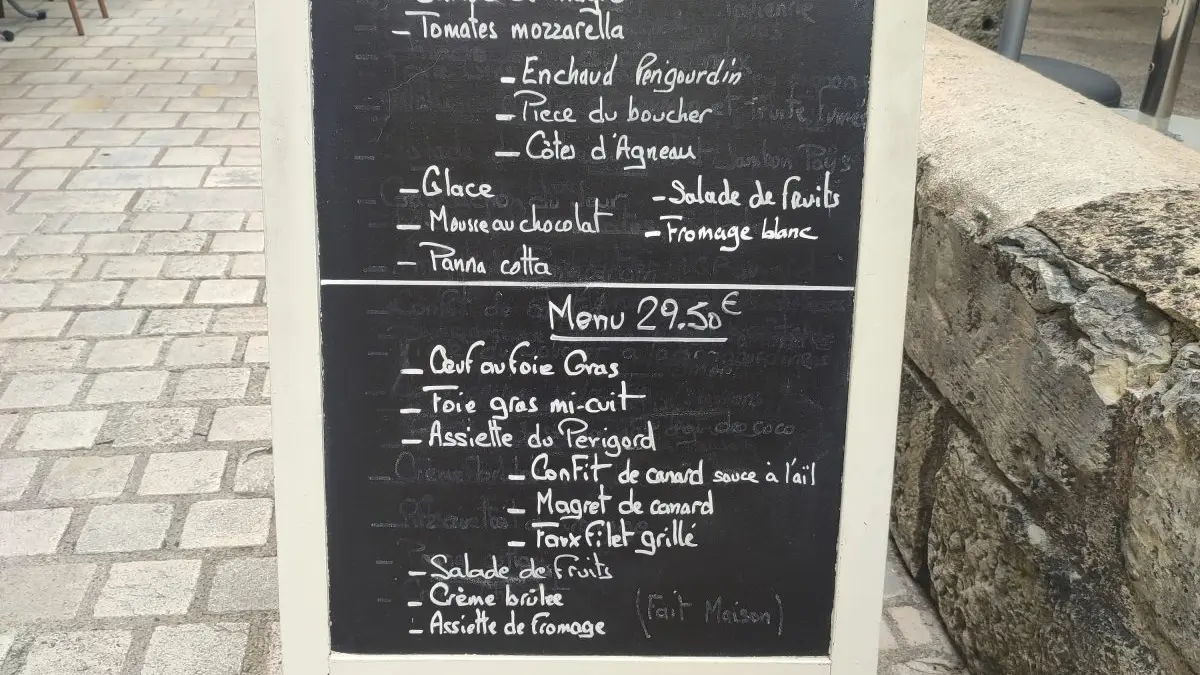 – Tomates mozzarella
– Enchaud Perigourdin
– Piece du boucher
– Côtes d'Agneau
– Glace – Salade de fruits
– Mousse au chocolat – Fromage blanc
– Panna cotta
Menu 29.50€
– Œuf au foie Gras
– Foie gras mi-cuit
– Assiette du Perigord
– Confit de canard sauce à l'aïl
– Magret de canard
– Faux filet grillé
– Salade de Fruits
– Crème brûlée
– Assiette de fromage (Fait Maison)